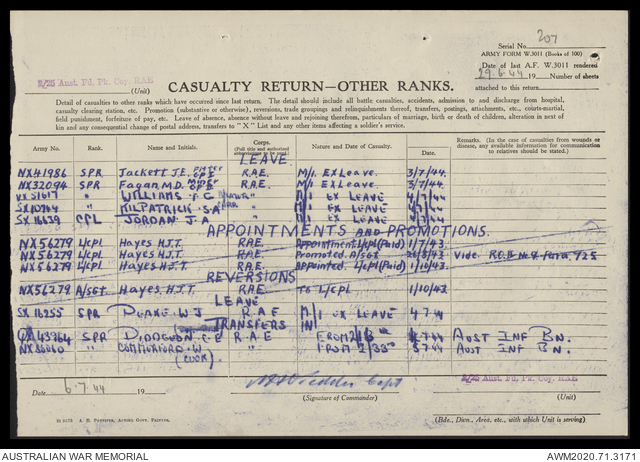 Serial No. 207
ARMY FORM W.3011 (Books of 100)
Date of last A.F. W.3011 rendered
29.6.44 19 Number of sheets
attached to this return
2/25 Aust. Fd. Pk. Coy. RAE
(Unit)
CASUALTY RETURN—OTHER RANKS.
Detail of casualties to other ranks which have occurred since last return. The detail should include all battle casualties, accidents, admission to and discharge from hospital,
casualty clearing station, etc. Promotion (substantive or otherwise), reversions, trade groupings and relinquishments thereof, transfers, postings, attachments, etc., courts-martial,
field punishment, forfeiture of pay, etc. Leave of absence, absence without leave and rejoining therefrom, particulars of marriage, birth or death of children, alteration in next of
kin and any consequential change of postal address, transfers to "X" List and any other items affecting a soldier's service.
Army No. Rank. Name and Initials. Corps. Nature and Date of Casualty. Date. Remarks. (In the case of casualties from wounds or disease, any available information for communication to relatives should be stated.)
LEAVE.
NX41986 SPR Jackett J.E. R.A.E. M/I EX Leave. 3/7/44.
NX32094 SPR Fagan M.D. R.A.E. M/I EX Leave. 3/7/44.
" WILLIAMS " M/I EX LEAVE 4/7/44
" KILPATRICK S.A. " EX LEAVE 4/7/44
SX16639 CPL JORDAN J.A " M/I EX LEAVE 4/7/44
APPOINTMENTS AND PROMOTIONS.
NX56279 L/cpl Hayes H.J.T. R.A.E. Appointment L/cpl (Paid) 1/7/43.
NX56279 L/cpl Hayes H.J.T. R.A.E. Promoted A/sgt Vide. Para. 725
NX56279 L/cpl Hayes H.J.T. R.A.E. Appointed L/cpl (Paid) 1/10/43.
REVERSIONS
NX56279 A/SGT Hayes. H.J.T. R.A.E. To L/cpl 1/10/43.
LEAVE
SX16255 SPR W J R A E M/I EX LEAVE 4 7 44
TRANSFERS IN
SPR C E R A E FROM 7 44 AUST INF BN.
" W. " FROM 7 44 AUST INF BN.
(COOK)
Date 6.7.44 19
Capt
(Signature of Commander)
2/25 Aust. Fd. Pk. Coy. RAE
(Unit)
A. H. Pettifer, Acting Govt. Printer.
(Bde., Divn., Area, etc., with which Unit is serving)
AUSTRALIAN WAR MEMORIAL
AWM2020.71.3171